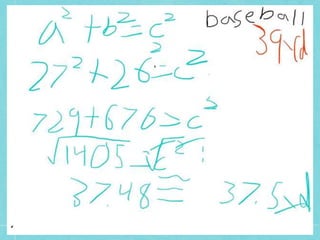 a² + b² = c²
baseball
39yd
27² + 26² = c²
729 + 676 = c²
√1405 = √c²
37.48 ≈ 37.5yd